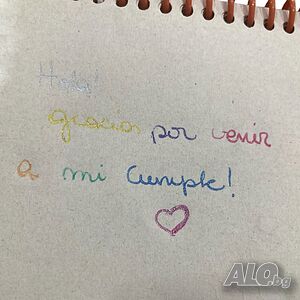 Hola!
gracias por venir
a mi Cumple!
ALO.bg